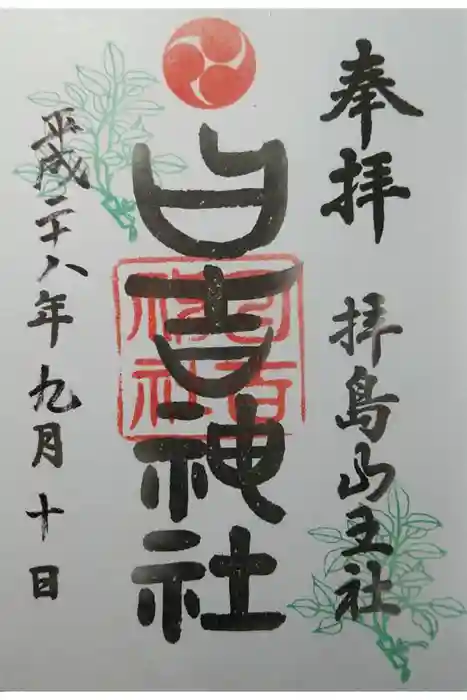 奉拝 拝島山王社
日吉神社
日吉神社
平成二十八年九月十日